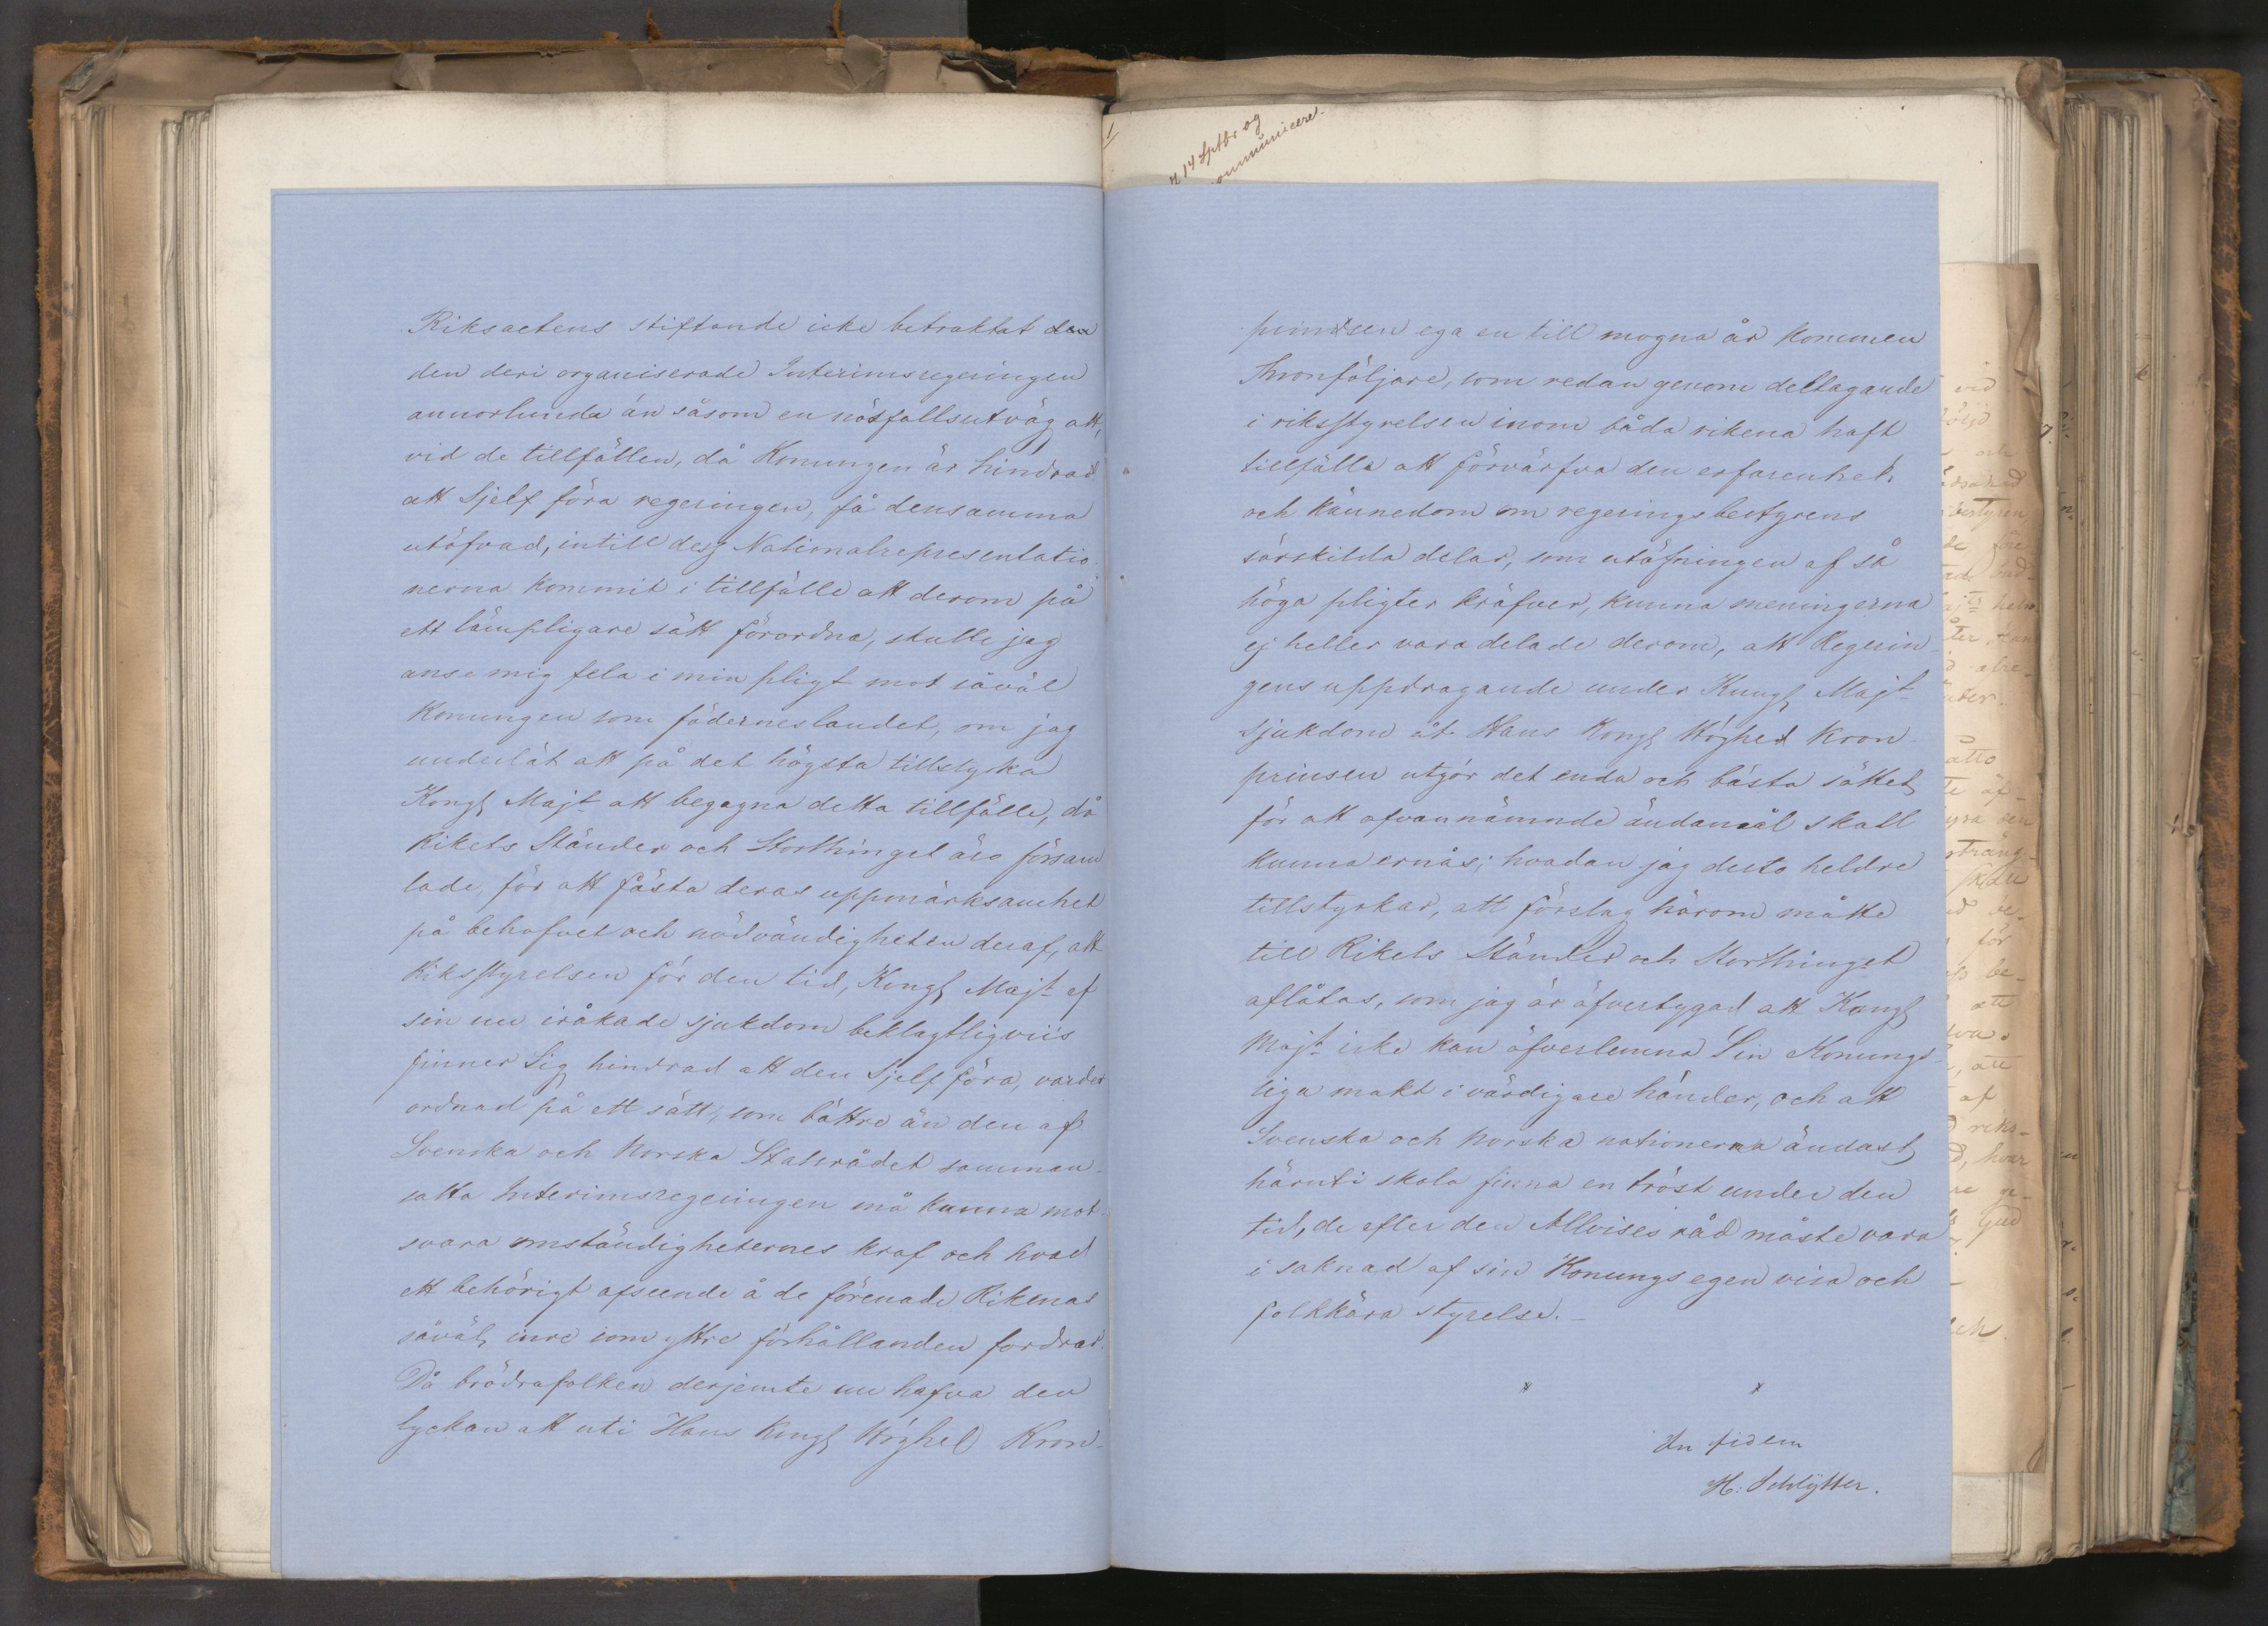 Riksactens stiftande icke betraktat den
den deri organiserade Interimsregeringen
annorlunda än såsom en nödfallsutväg att,
vid de tillfällen, då Konungen är hindrad
att Sjelf föra regeringen, få densamma
utöfvad, intill dess Nationalrepresentatio-
nerna kommit i tillfälle att derom på
ett lämpligare sätt förordna, skulle jag
anse mig fela i min pligt mot såväl
Konungen som fäderneslandet, om jag
underlät att på det högsta tillstyrka
Kongl Majt att begagna detta tillfälle, då
Rikets Ständer och Storthinget äro försam
lade, för att fästa deras uppmärksamhet
på behofvet och nödvändigheten deraf, att
Riksstyrelsen för den tid, Kongl Majt af
sin nu iråkade sjukdom beklagtligviis
finner Sig hindrad att den Sjelf föra, varder
ordnad på ett sätt, som bättre än den af
Svenska och Norska Statsrådet samman-
satta Interimsregeringen må kunna mot-
svara omständigheternes kraf och hvad
ett behörigt afseende å de förenade Rikenas
såväl inre som yttre förhållanden fordrar.
Då brödrafolken derjemte nu hafva den
lyckan att uti Hans Kongl Höghet Kron-
1
14 Sptbr og
ommuniceret.
prindsen ega en till mogna år kommen
Thronföljare, som redan genom deltagande
i riksstyrelsen inom båda rikena haft
tillfälle att förvärfva den erfarenhet
och kännedom om regeringsbestyrens
särskilda delar, som utöfningen af så
höga pligter kräfver, kunna meningarna
ej heller vara delade derom, att Regerin-
gens uppdragande under Kungl Majts
sjukdom åt Hans Kongl Höghet Kron-
prinsen utgör det enda och bästa sättet
för att ofvannämnde ändamål skall
kunna ernås; hvadan jag desto heldre
tillstyrkar, att förslag härom måtte
till Rikets Ständer och Storthinget
aflåtas, som jag är öfvertygad att Kongl
Majt icke kan öfverlemna Sin Konungs-
liga makt i värdigare händer, och att
Svenska och Norska nationerna ändast
häruti skola finna en tröst under den
tid, de efter den Allvises råd måste vara
i saknad af sin Konungs egen visa och
folkkära styrelse.
In fidem
H. Schlytter.